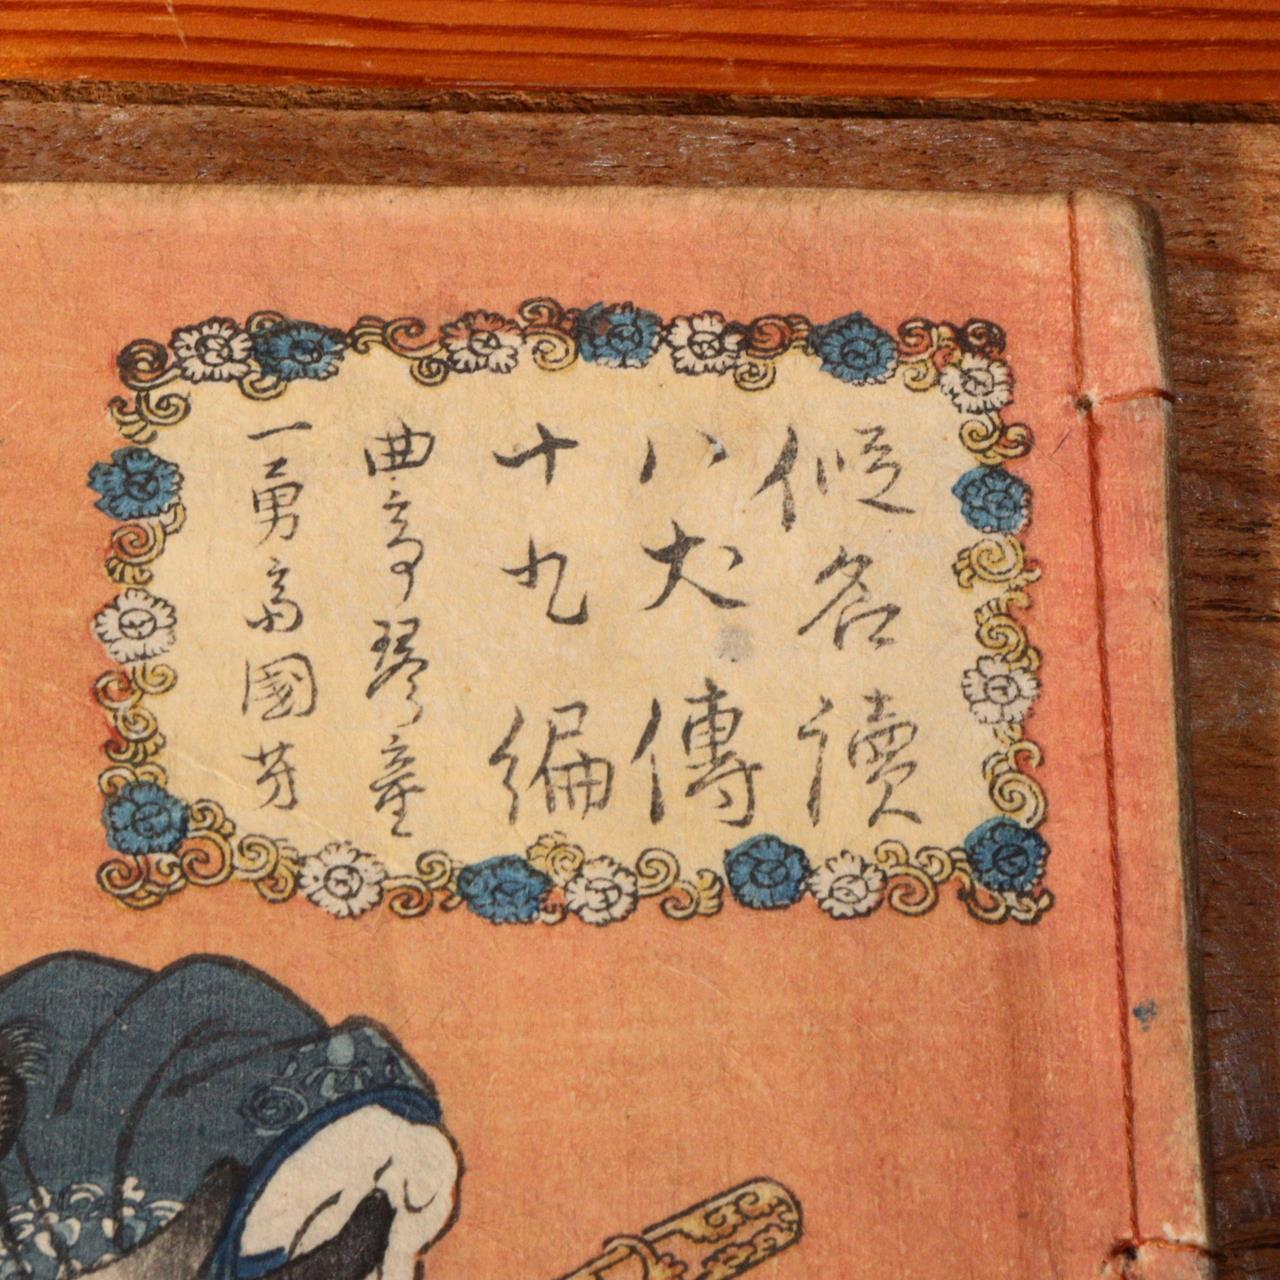 假名讀
八犬傳
十九編
曲亭琴童
一勇齋國芳